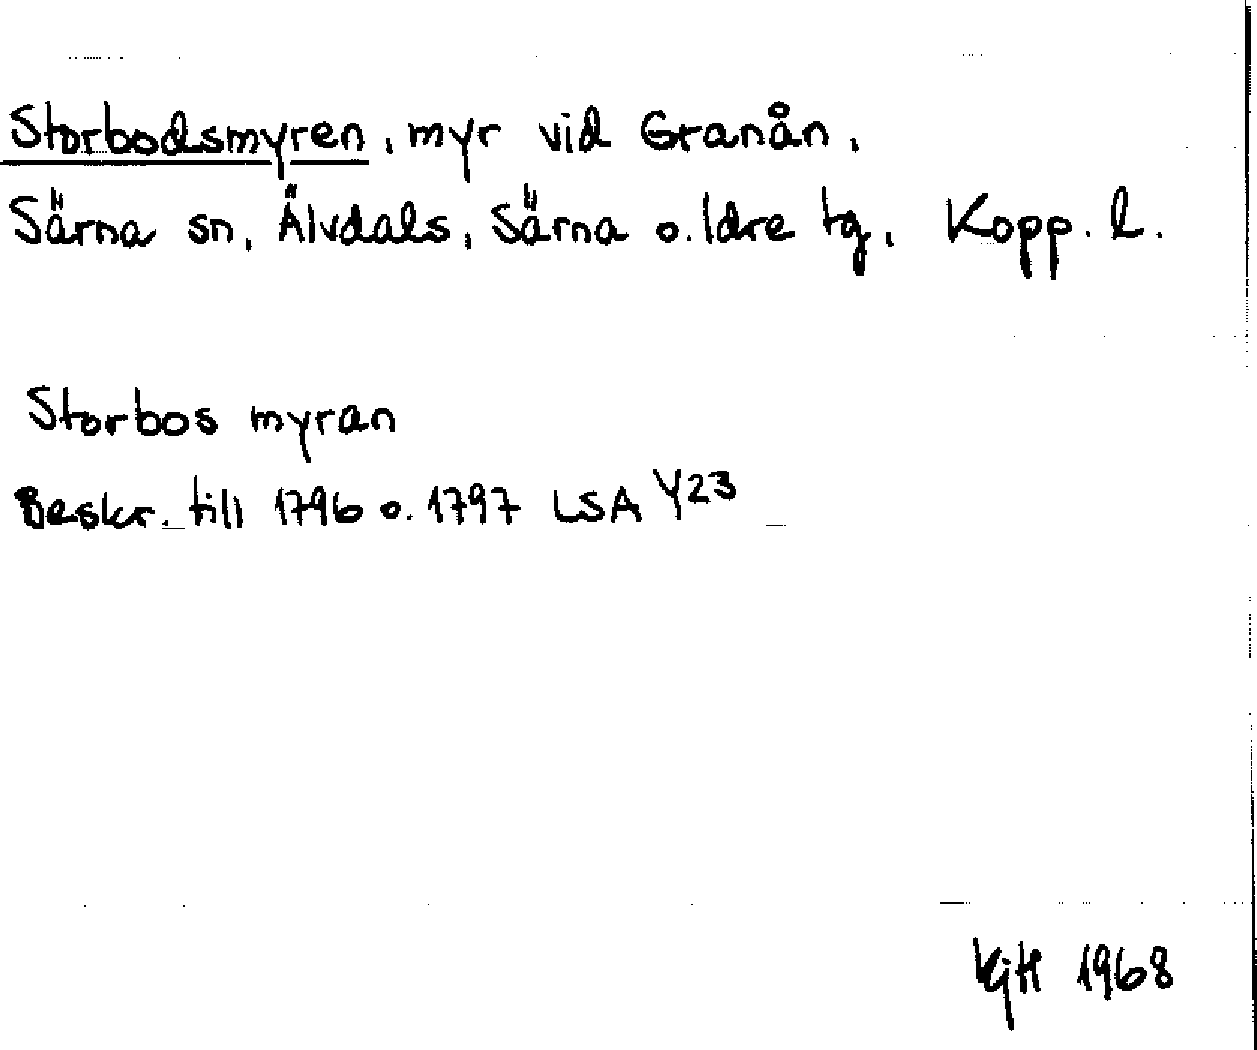 Storbodsmyren, myr vid Granån,
Särna sn, Älvdals, Särna o. Idre tg, Kopp. l.
Storbos myran
Beskr. till 1796 o. 1797 LSA Y23
KjH 1968